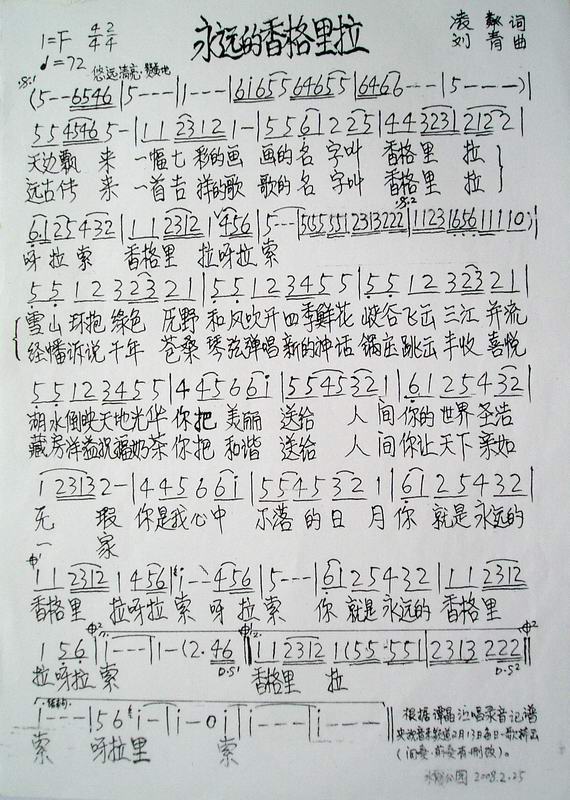 永远的香格里拉
1=F 4/4 2/4
凌 词
刘青 曲
♩=72 悠远 清亮
(5--6546|5---|1---|6i655646655|6466--|5----)|
554546 5-|11 2312 1-|5561 225|44323121221|
天边飘 来 一幅七 彩的画 画的名 字叫 香格里 拉
远古传 来 一首吉 祥的歌 歌的名 字叫 香格里 拉
612 5432|11 2312 1456|5---|555551231322|112316561110)|
呀 拉 索 香格里 拉呀拉 索
5512 32321|5512 3455|5512 32321|
雪山环抱 绿色 原野 和风吹开四季鲜花 峡谷飞云 三江 并流
经幡诉说 千年 苍桑 琴弦弹唱 新的神话 锅庄跳云 丰收 喜悦
5512 3455|445 66i|554 5321|612 5432|
湖水倒映天地光华 你把 美丽 送给 人 间 你的 世界 圣洁
藏房洋溢祝福奶茶 你把 和谐 送给 人 间 你让 天下 亲如
1 23132-|445 66i|5545 321|612 5432|
无 瑕 你是我心中 不落 的 日 月 你 就是永远的
一 家
11 2312 1456|i--456|5---|612 5432|11 2312|
香格里 拉呀拉 索 呀 拉 索 你 就是永远的 香格里
1 56|i---|1-(2. 46|11 2312 1(55·551|2313 222)|
拉呀拉 索 香格里 拉
D.S1
D.S2
结束句
i---|56i-|i-0i|i---|i----||
索 呀拉里 索
根据谭晶演唱录音记谱
(间奏·前奏有删改)。
2008.2.25